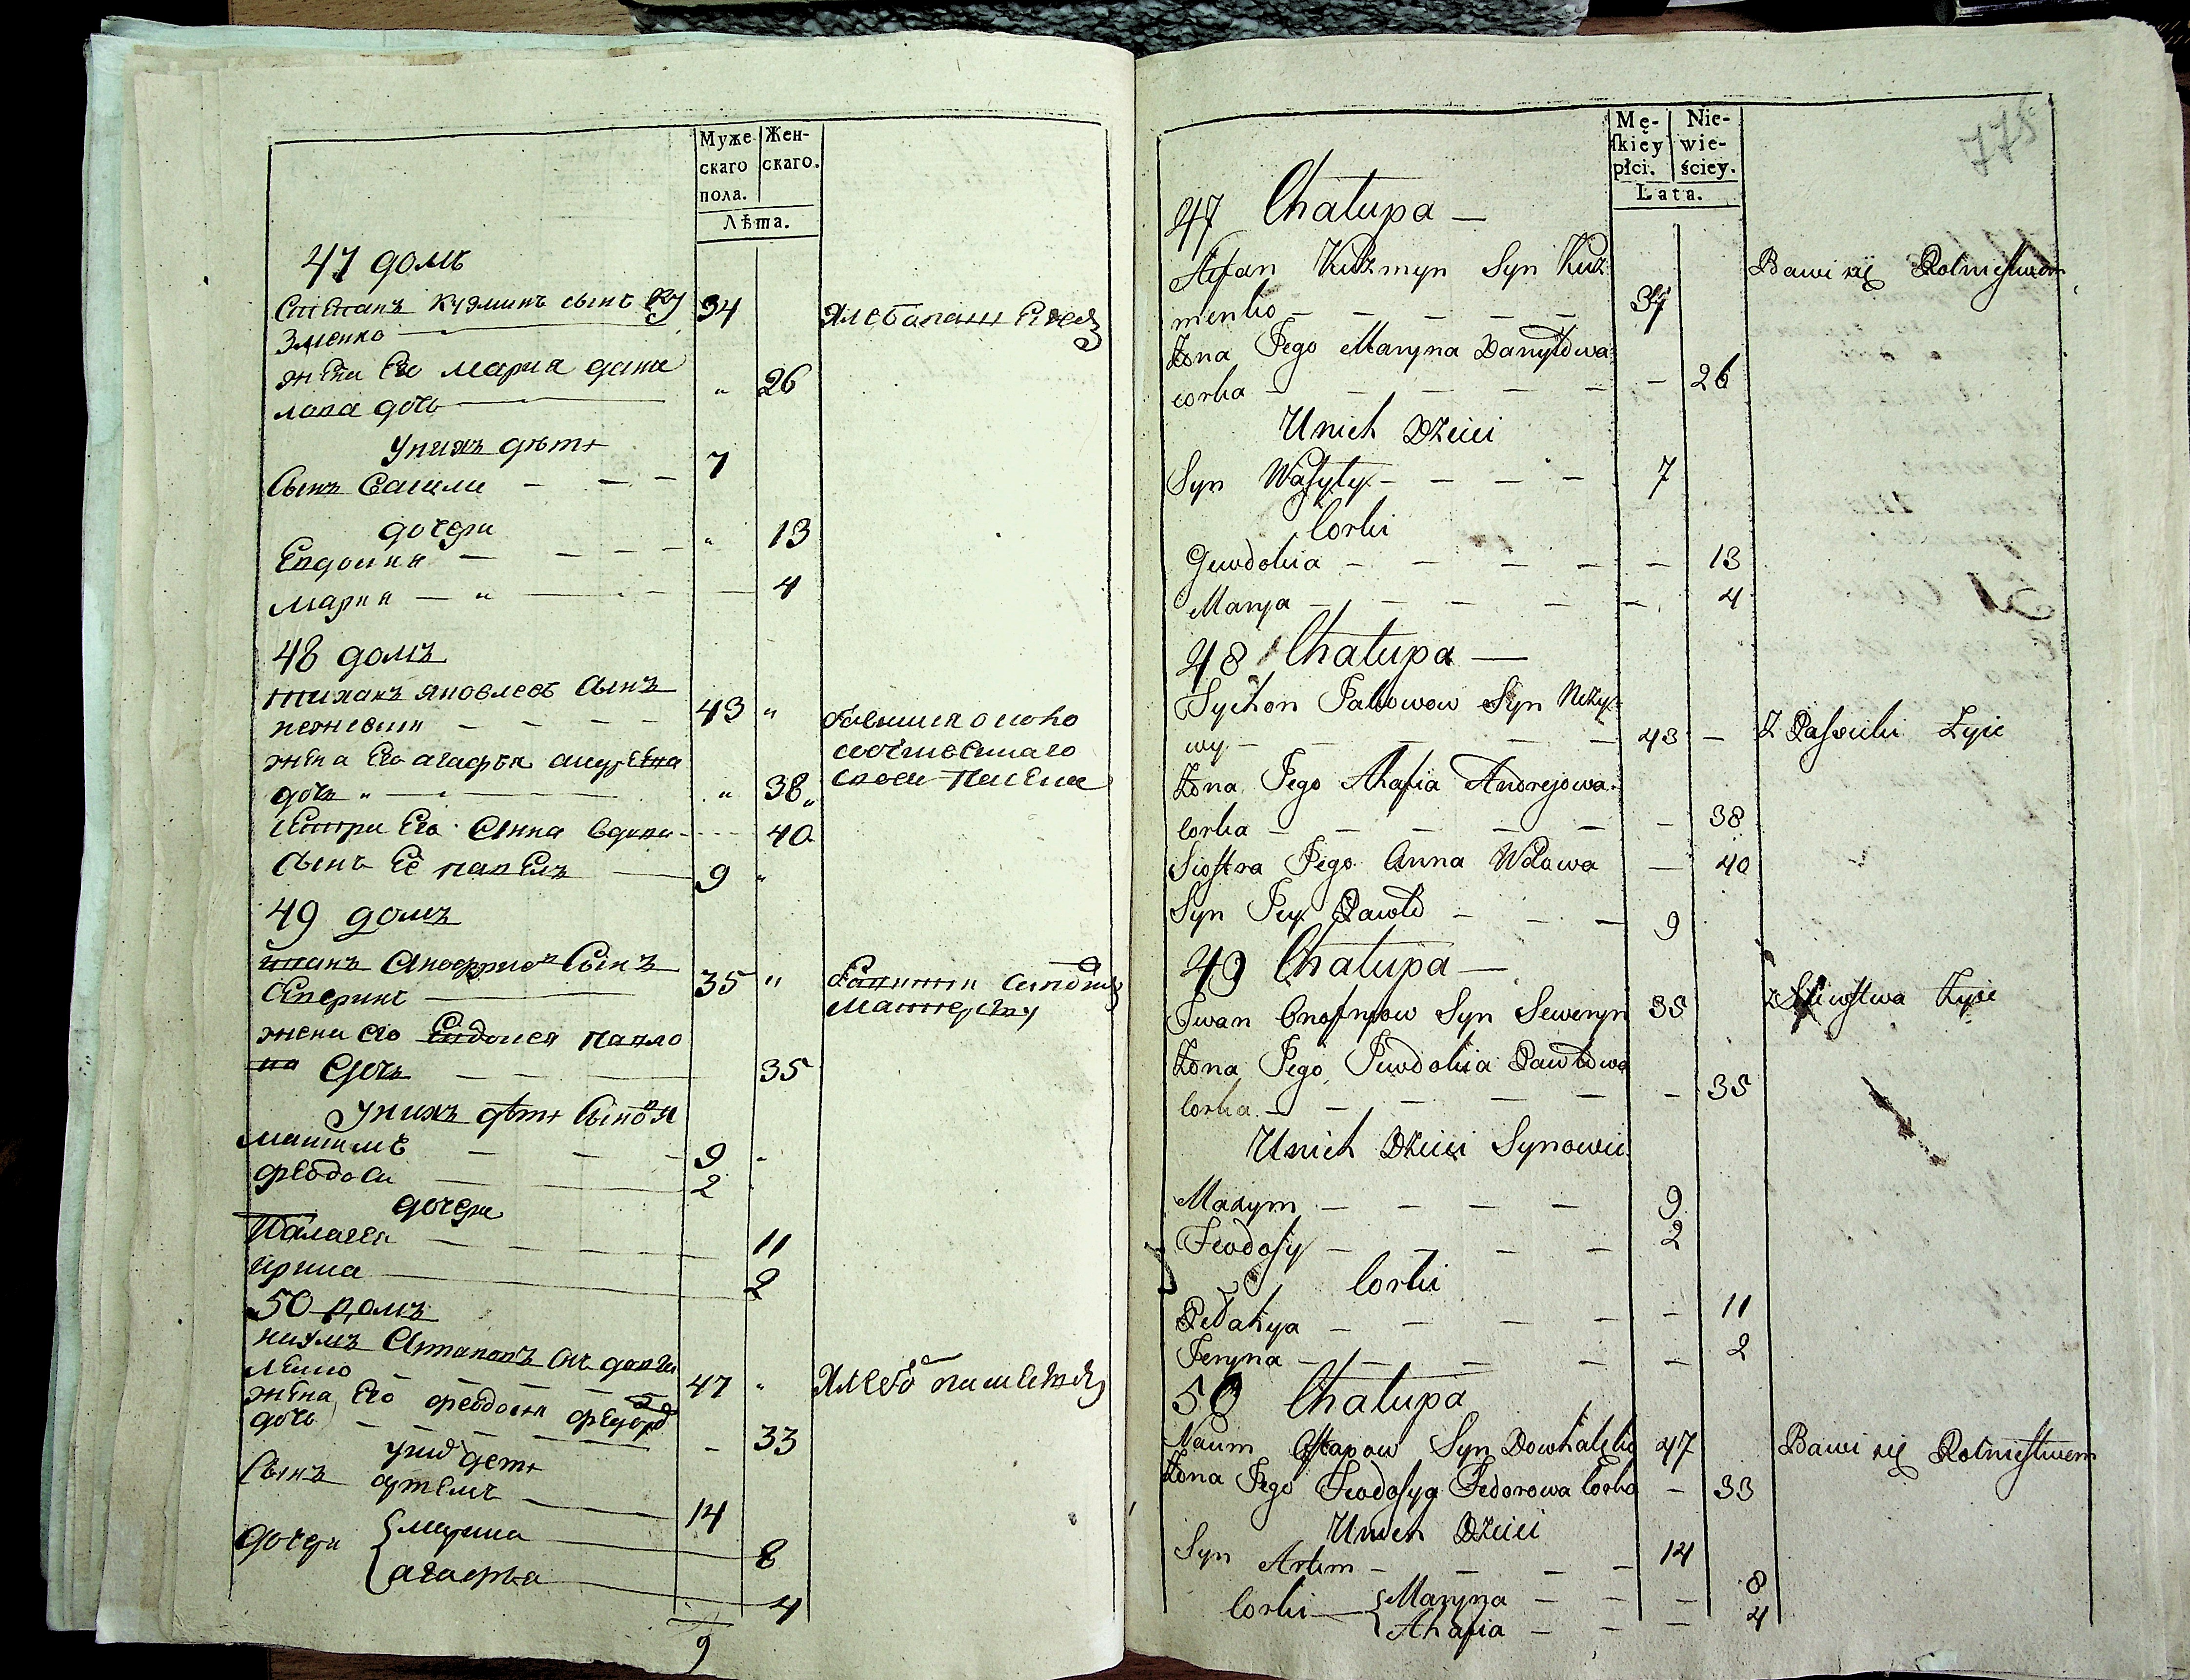 Муже-
скаго
пола.
Жен-
скаго.
Лѣта.
47 домъ
Степанъ Кузминъ сынъ Ку
зменко 34
жена Его Мария дани
лова дочь " 26
У нихъ дѣти
Сынъ Василь 7
дочери
Евдокия " 13
Мария 4
48 домъ
Тихонъ Яковлевъ сынъ
неживый 43 "
жена Его агафия андреева
дочь " 38
Сестра Его Анна вдова 40
сынъ Её павелъ 9 "
49 домъ
иванъ Аноффриевъ Сынъ
Северинъ 35 "
жена его Евдокея павло
ва дочь 35
У нихъ дѣти Сыновя
Максимъ 9
феодоси 2
дочери
Палагея 11
ирина 2
50 домъ
наумъ Астаповъ Сынъ довга
ленко 47 "
жена Его феодосия федорова
дочь 33
У нихъ дети
Сынъ артемъ 14
дочери марина 8
агафья 4
9
775
Mę-
ſkiey
płci.
Nie-
wie-
ściey.
Lata.
47 Chałupa
Stefan Kuźmyn Syn Kuź
menko 34 Bawi się Rolnictwem
Żona Jego Maryna Daniłowa
corka 26
U nich Dzieci
Syn Wasyly 7
Corki
Gewdokia 13
Marya 4
48 Chałupa
Tychon Jakowow Syn Neży
wy 43 Z Pasieki Żyie
Żona Jego Ahafia Andrejowa
Corka 38
Siostra Jego Anna Wdowa 40
Syn Jey Pawło 9
49 Chałupa
Iwan Onofryow Syn Seweryn 35 z Szewstwa Żyie
Żona Jego Jewdokia Pawłowa
Corka 35
U nich Dzieci Synowie
Maxym 9
Feodosy 2
Corki
Pełahya 11
Jeryna 2
50 Chałupa
Naum Ostapow Syn Dowhalenko 47 Bawi się Rolnictwem
Żona Jego Feodosya Fedorowa Corka 33
U nich Dzieci
Syn Artem 14
Corki Maryna 8
Ahafia 4